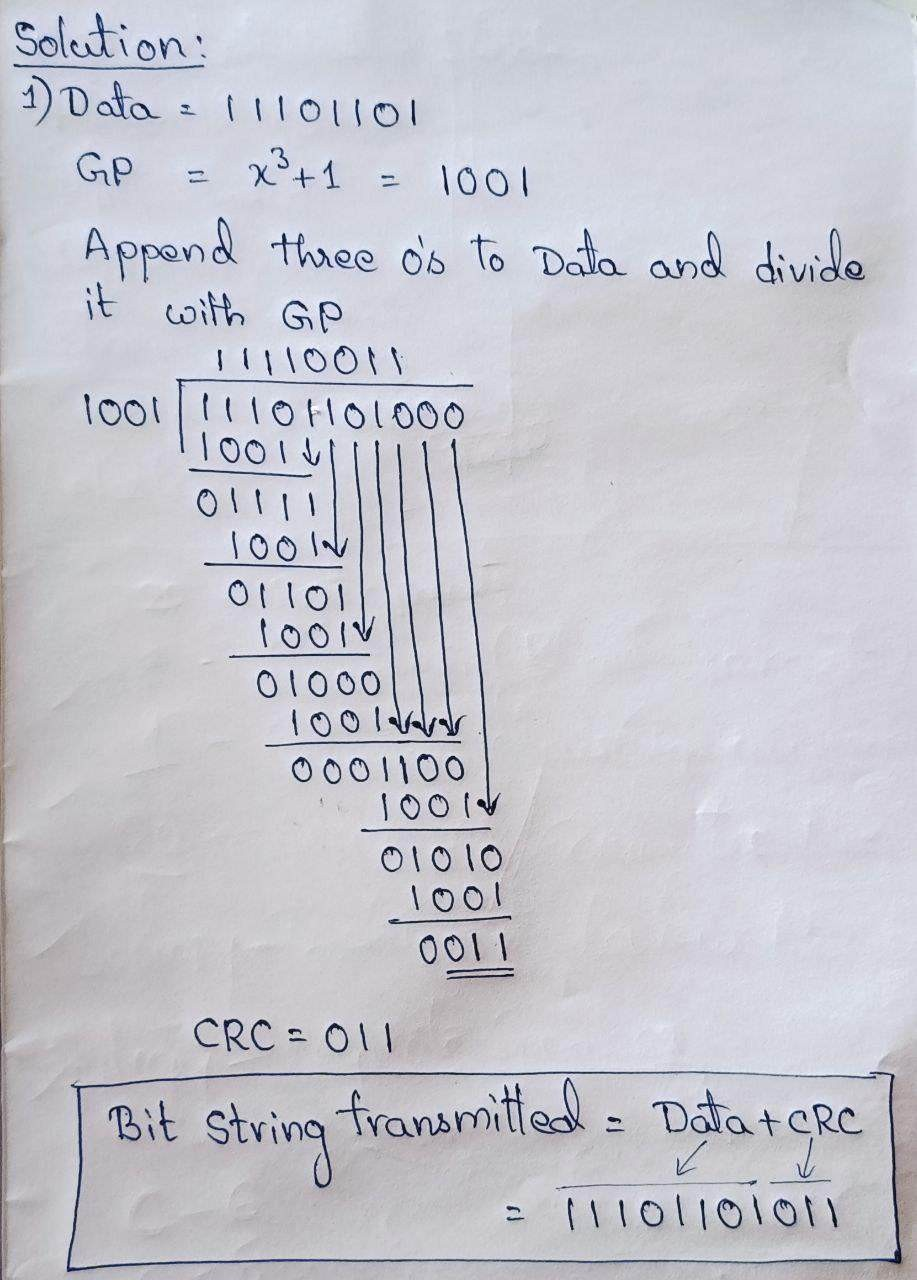 Solution:
1) Data = 11101101
GP = x³+1 = 1001
Append three 0's to Data and divide
it with GP
11110011
1001 11101101000
1001
01111
1001
01101
1001
01000
1001
0001100
1001
01010
1001
0011
CRC = 011
Bit String transmitted = Data + CRC
= 11101101011